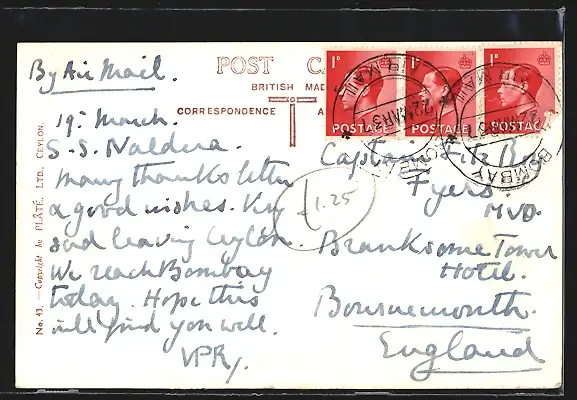 By Air Mail.
POST CA
BRITISH MAD
CORRESPONDENCE A
19th March.
S-S. Naldera.
Many thanks letter
& good wishes. Very
sad leaving Ceylon.
We reach Bombay
today. Hope this
will find you well.
VPR
1.25
Captain Fitz
Fyers. MVO.
Branksome Tower
Hotel.
Bournemouth.
England
1D
POSTAGE
1D
POSTAGE
1D
POSTAGE
AIR MAIL
22 MAR 3
BOMBAY
BOMBAY
No. 43. — Copyright by PLÂTÉ, LTD., CEYLON.